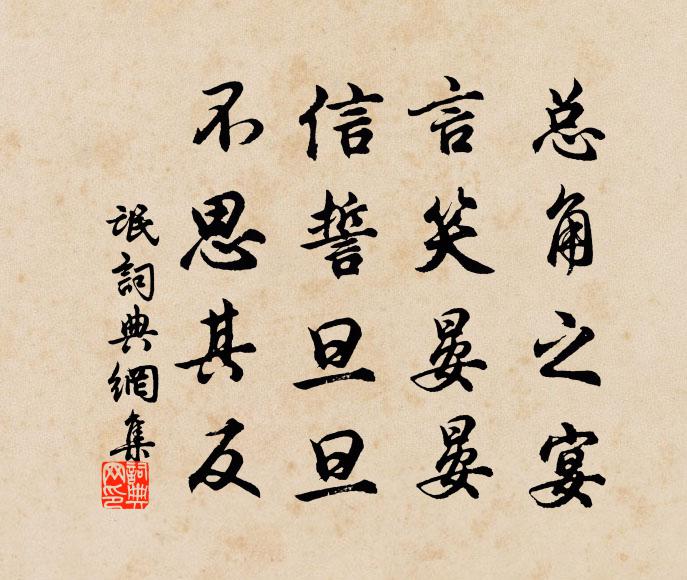 总角之宴
言笑晏晏
信誓旦旦
不思其反
氓詞典網集
詞典网印